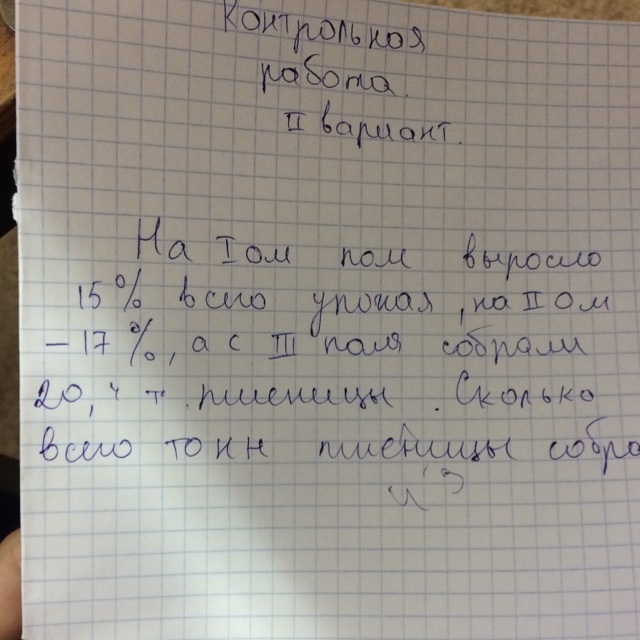 Контрольная
работа.
II вариант.
На I ом поле выросло
15% всего урожая, на II ом
– 17%, а с III поля собрали
20,4 т. пшеницы. Сколько
всего тонн пшеницы собра
ли?